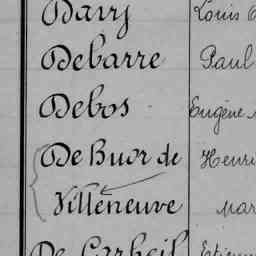 Davy Louis
Debarre Paul
Debos Eugène
De Buor de Henri
Villeneuve Mar
De Carheil Etienne